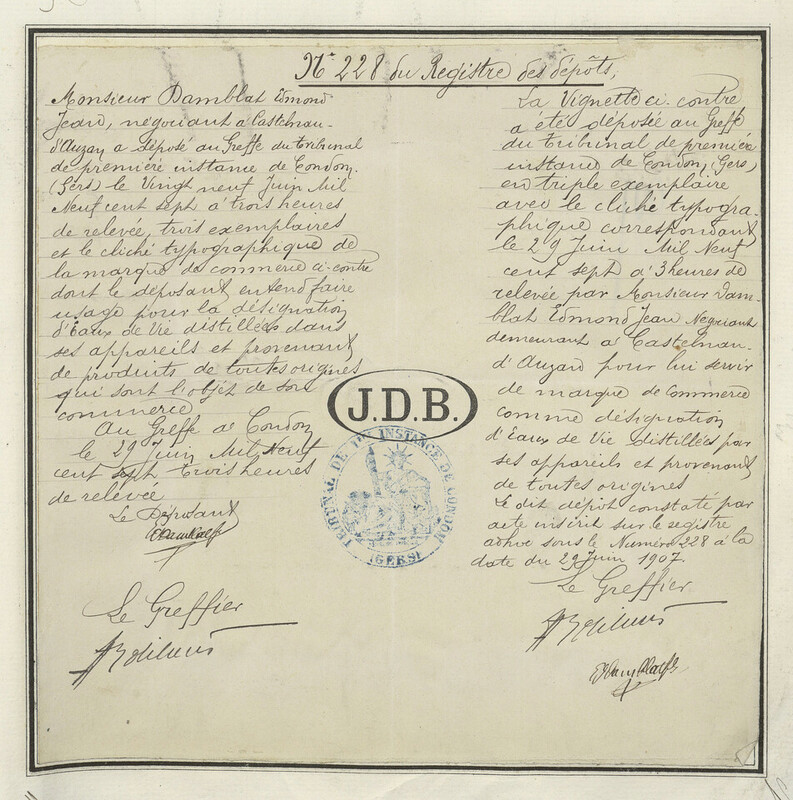 N° 228 du Registre des dépôts,
Monsieur Damblat Edmond
Jean, négociant à Castelnau-
d'Auzan a déposé au Greffe du tribunal
de première instance de Condom
(Gers) le Vingt neuf Juin Mil
Neuf cent sept à trois heures
de relevée, trois exemplaires
et le cliché typographique de
la marque de commerce ci-contre
dont le déposant entend faire
usage pour la désignation
d'Eaux de Vie distillées dans
ses appareils et provenant
de produits de toutes origines
qui sont l'objet de son
commerce
Au Greffe de Condom
le 29 Juin Mil Neuf
cent sept trois heures
de relevée
Le Déposant
EDamblat
Le Greffier
J.D.B.
TRIBUNAL DE 1re INSTANCE DE CONDOM
(GERS)
La Vignette ci-contre
a été déposée au Greffe
du tribunal de première
instance de Condom, (Gers)
en triple exemplaire
avec le cliché typogra-
phique correspondant
le 29 Juin Mil Neuf
cent sept à 3 heures de
relevée par Monsieur Dam-
blat Edmond Jean Négociant
demeurant à Castelnau-
d'Auzan pour lui servir
de marque de Commerce
comme désignation
d'Eaux de Vie distillées par
ses appareils et provenant
de toutes origines
Le dit dépôt constaté par
acte inscrit sur le registre
ad hoc sous le Numéro 228 à la
date du 29 Juin 1907.
Le Greffier
EDamblat